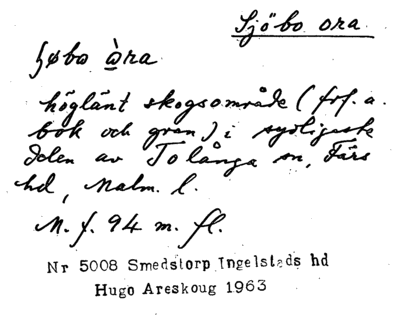 Sjöbo ora
höglänt skogsområde (frf. a.
bok och gran) i sydligaste
delen av Tolånga sn, Färs
hd, Malm. l.
M. f. 94 m. fl.
Nr 5008 Smedstorp Ingelstads hd
Hugo Areskoug 1963